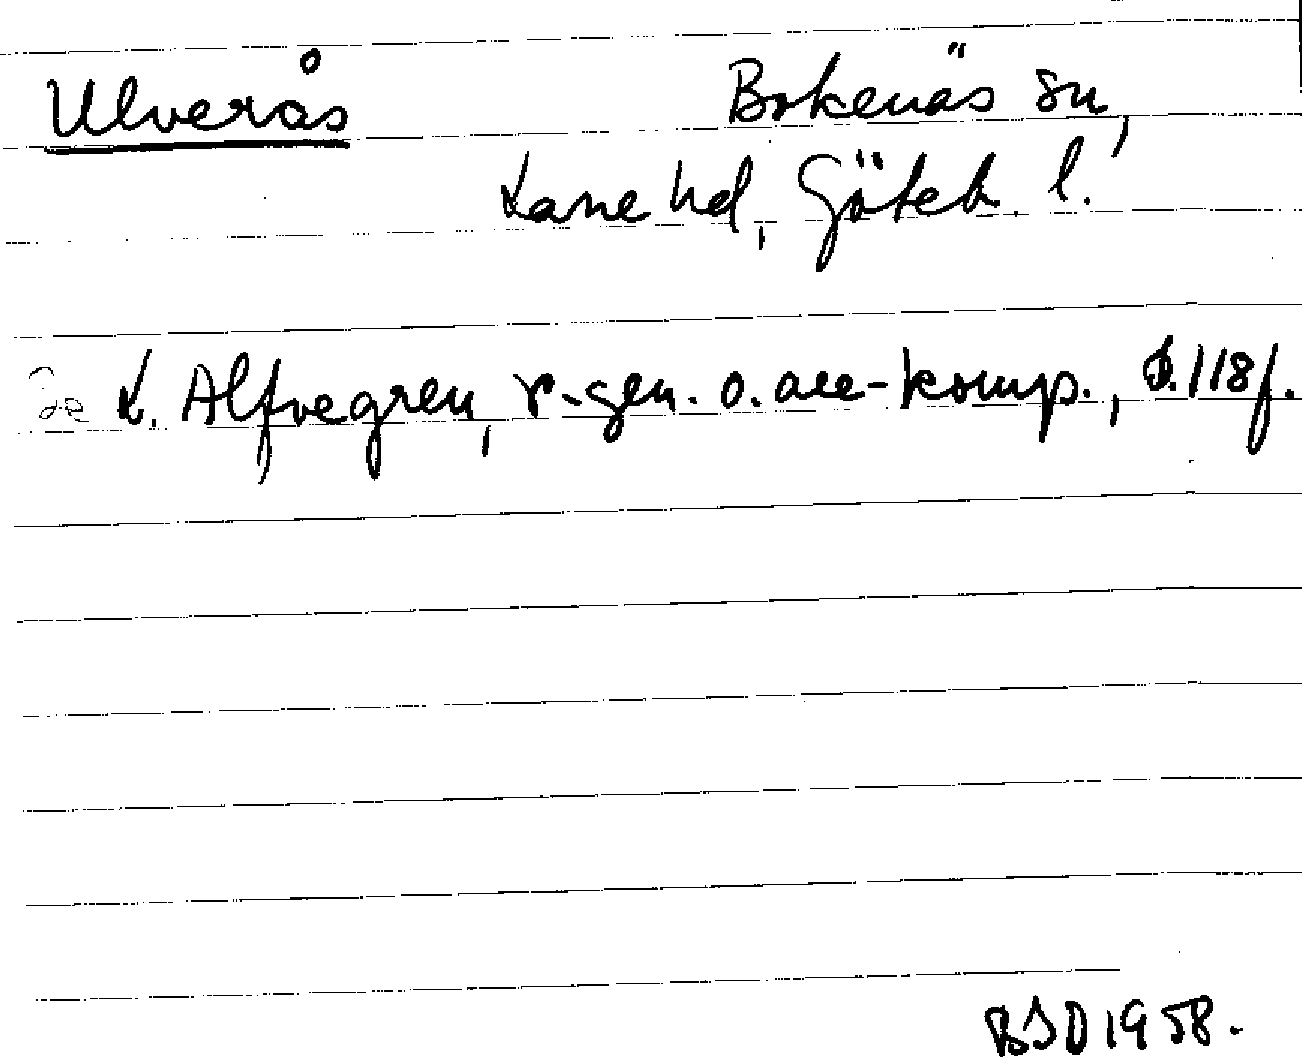 Ulverås Bokenäs sn,
Lane hd, Göteb. l.
Se L. Alfvegren, r-gen. o. are-komp., s. 118 f.
BSD 1958.